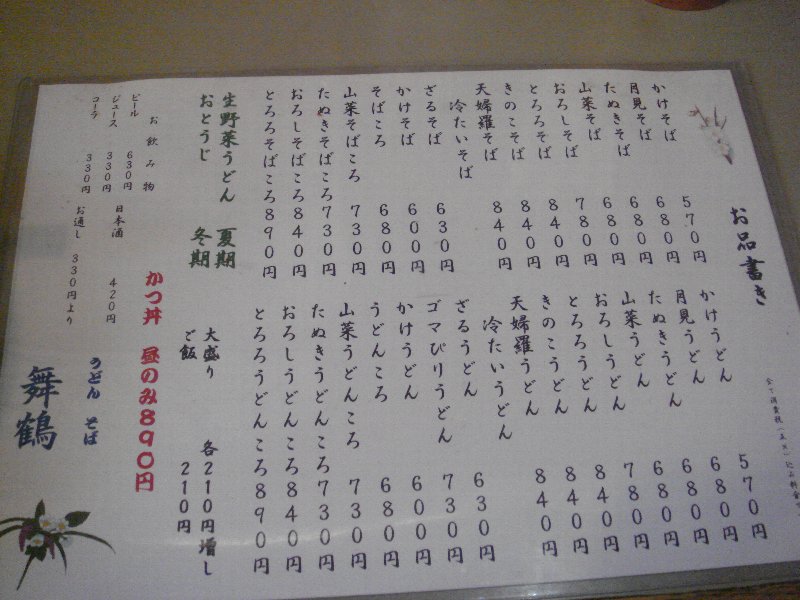 お品書き
かけそば 570円
月見そば 680円
たぬきそば 680円
山菜そば 680円
おろしそば 780円
とろろそば 840円
きのこそば 840円
天婦羅そば 840円
冷たいそば
ざるそば 630円
かけそば 600円
そばころ 680円
山菜そばころ 730円
たぬきそばころ 730円
おろしそばころ 840円
とろろそばころ 890円
生野菜うどん 夏期
おとうじ 冬期
かけうどん 570円
月見うどん 680円
たぬきうどん 680円
山菜うどん 680円
おろしうどん 780円
とろろうどん 840円
きのこうどん 840円
天婦羅うどん 840円
冷たいうどん
ざるうどん 630円
ゴマぴりうどん 730円
かけうどん 600円
うどんころ 680円
山菜うどんころ 730円
たぬきうどんころ 730円
おろしうどんころ 840円
とろろうどんころ 890円
大盛り 各210円増し
ご飯 210円
かつ丼 昼のみ890円
お飲み物
ビール 630円
ジュース 330円
コーラ 330円
日本酒 420円
お通し 330円より
うどん そば
舞鶴